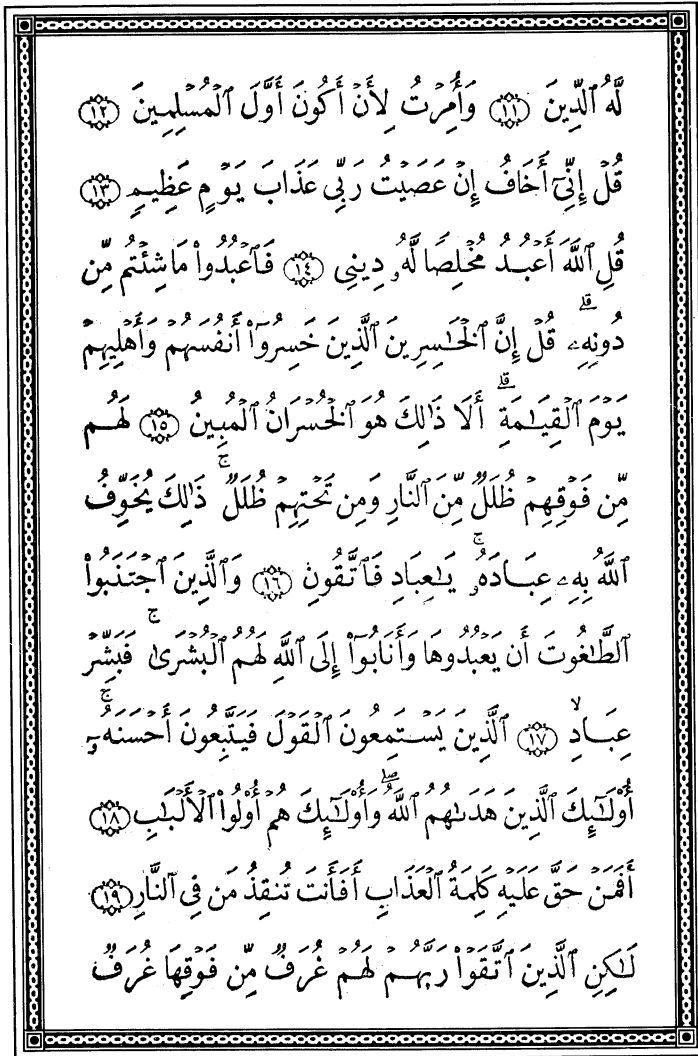 لَّهُ ٱلدِّينَ ١١ وَأُمِرْتُ لِأَنْ أَكُونَ أَوَّلَ ٱلْمُسْلِمِينَ ١٢
قُلْ إِنِّىٓ أَخَافُ إِنْ عَصَيْتُ رَبِّى عَذَابَ يَوْمٍ عَظِيمٍ ١٣
قُلِ ٱللَّهَ أَعْبُدُ مُخْلِصًا لَّهُۥ دِينِى ١٤ فَٱعْبُدُوا۟ مَا شِئْتُم مِّن
دُونِهِۦ ۗ قُلْ إِنَّ ٱلْخَـٰسِرِينَ ٱلَّذِينَ خَسِرُوٓا۟ أَنفُسَهُمْ وَأَهْلِيهِمْ
يَوْمَ ٱلْقِيَـٰمَةِ ۗ أَلَا ذَٰلِكَ هُوَ ٱلْخُسْرَانُ ٱلْمُبِينُ ١٥ لَهُم
مِّن فَوْقِهِمْ ظُلَلٌ مِّنَ ٱلنَّارِ وَمِن تَحْتِهِمْ ظُلَلٌ ۚ ذَٰلِكَ يُخَوِّفُ
ٱللَّهُ بِهِۦ عِبَادَهُۥ ۚ يَـٰعِبَادِ فَٱتَّقُونِ ١٦ وَٱلَّذِينَ ٱجْتَنَبُوا۟
ٱلطَّـٰغُوتَ أَن يَعْبُدُوهَا وَأَنَابُوٓا۟ إِلَى ٱللَّهِ لَهُمُ ٱلْبُشْرَىٰ ۚ فَبَشِّرْ
عِبَادِ ۙ ١٧ ٱلَّذِينَ يَسْتَمِعُونَ ٱلْقَوْلَ فَيَتَّبِعُونَ أَحْسَنَهُۥٓ ۚ
أُو۟لَـٰٓئِكَ ٱلَّذِينَ هَدَىٰهُمُ ٱللَّهُ ۖ وَأُو۟لَـٰٓئِكَ هُمْ أُو۟لُوا۟ ٱلْأَلْبَـٰبِ ١٨
أَفَمَنْ حَقَّ عَلَيْهِ كَلِمَةُ ٱلْعَذَابِ أَفَأَنتَ تُنقِذُ مَن فِى ٱلنَّارِ ١٩
لَـٰكِنِ ٱلَّذِينَ ٱتَّقَوْا۟ رَبَّهُمْ لَهُمْ غُرَفٌ مِّن فَوْقِهَا غُرَفٌ